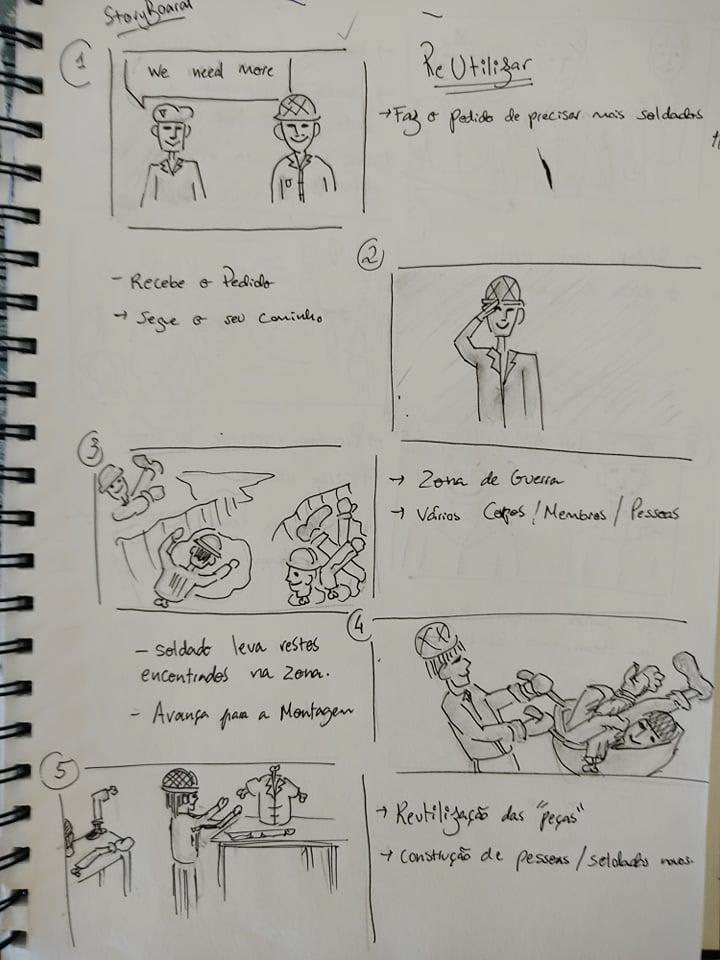 StoryBoard
1
We need more
ReUtilizar
→ Faz o pedido de precisar mais soldados
2
- Recebe o Pedido
→ Segue o seu caminho
3
→ Zona de Guerra
→ Vários Corpos / Membros / Pessoas
4
- Soldado leva restos
encontrados na Zona.
- Avança para a Montagem
5
→ Reutilização das "peças"
→ Construção de pessoas / soldados novos.